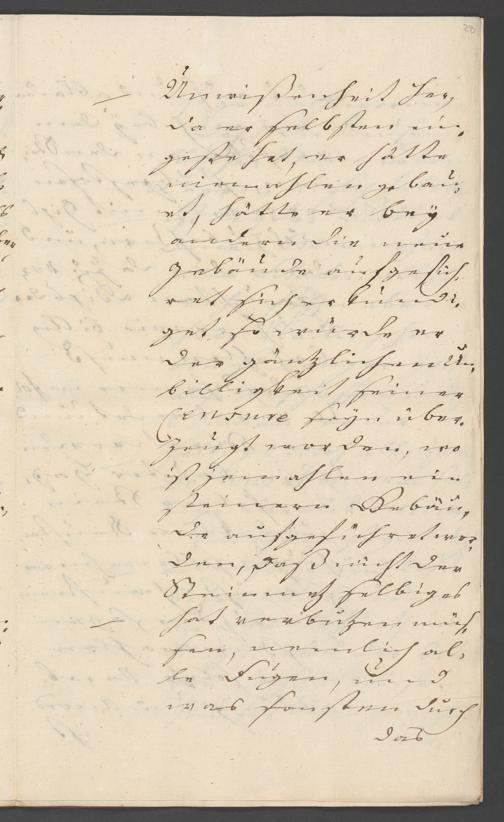 Unwißenheit her,
da er selbsten ein,
gestehet, er hätte
niemahlen gebau,
et, hätte er bey
andern die neue
Gebäude aufgefüh,
ret sich erkundi,
get so würde er
der gäntzlichen Un,
billigkeit seiner
Censure seyn über,
zeugt worden, wo
ist jemahlen ein
steinern Gebäu,
de aufgeführet wor,
den, daß nicht der
Steinmetz selbiges
hat verbutzen müs,
sen, nemlich al,
le Fugen, und
was sonsten durch
das